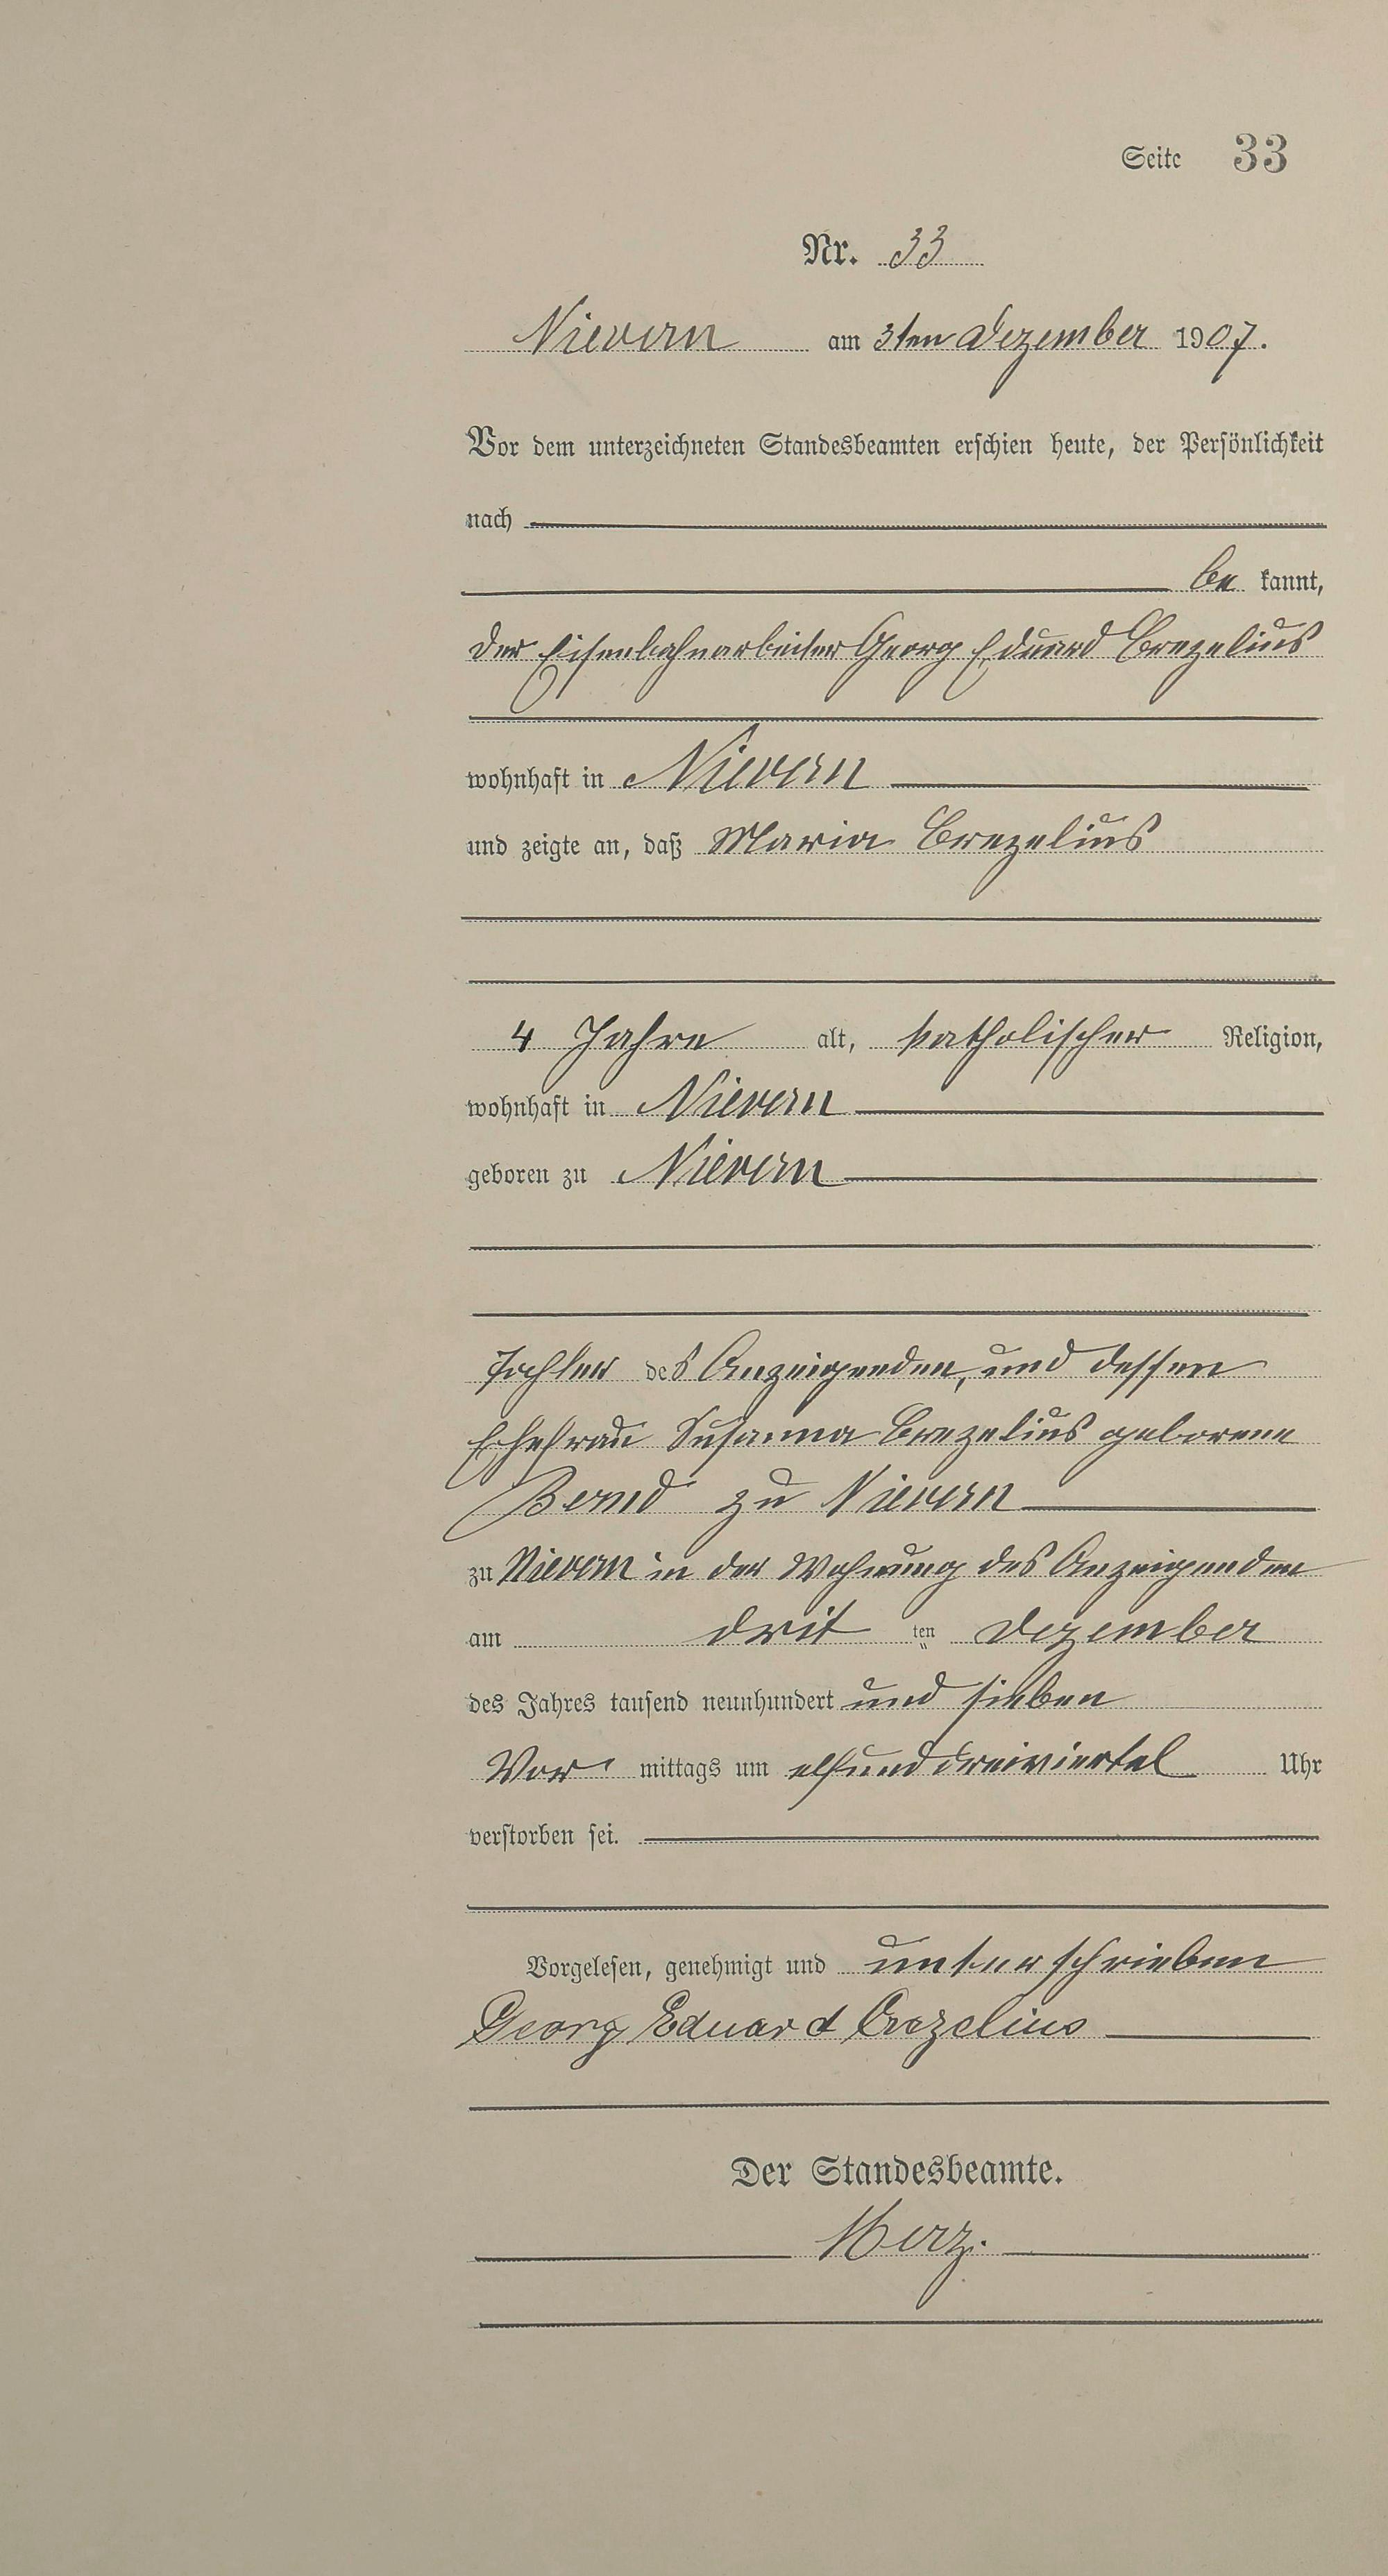 Seite 33
Nr. 33
Nievern am 3ten Dezember 1907.
Vor dem unterzeichneten Standesbeamten erschien heute, der Persönlichkeit
nach
be kannt,
der Eisenbahnarbeiter Georg Eduard Crezelius
wohnhaft in Nievern
und zeigte an, daß Maria Crezelius
4 Jahre alt, katholischer Religion,
wohnhaft in Nievern
geboren zu Nievern
Tochter des Anzeigenden, und dessen
Ehefrau Susanna Crezelius geborene
Bernd zu Nievern
zu Nievern in der Wohnung des Anzeigenden
am drit ten Dezember
des Jahres tausend neunhundert und sieben
Vor mittags um elfunddreiviertel Uhr
verstorben sei.
Vorgelesen, genehmigt und unterschrieben
Georg Eduard Crezelius
Der Standesbeamte.